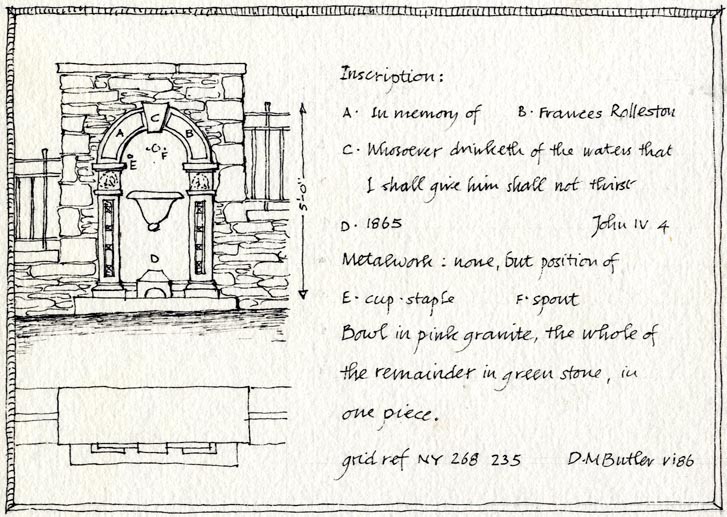 Inscription:
A. In memory of B. Frances Rolleston
C. Whosoever drinketh of the waters that
I shall give him shall not thirst
D. 1865 John IV 4
Metalwork: none, but position of
E. cup-staple F. spout
Bowl in pink granite, the whole of
the remainder in green stone, in
one piece.
grid ref NY 268 235 D.M Butler vi 86
C
A B
E F
D
5'-0"